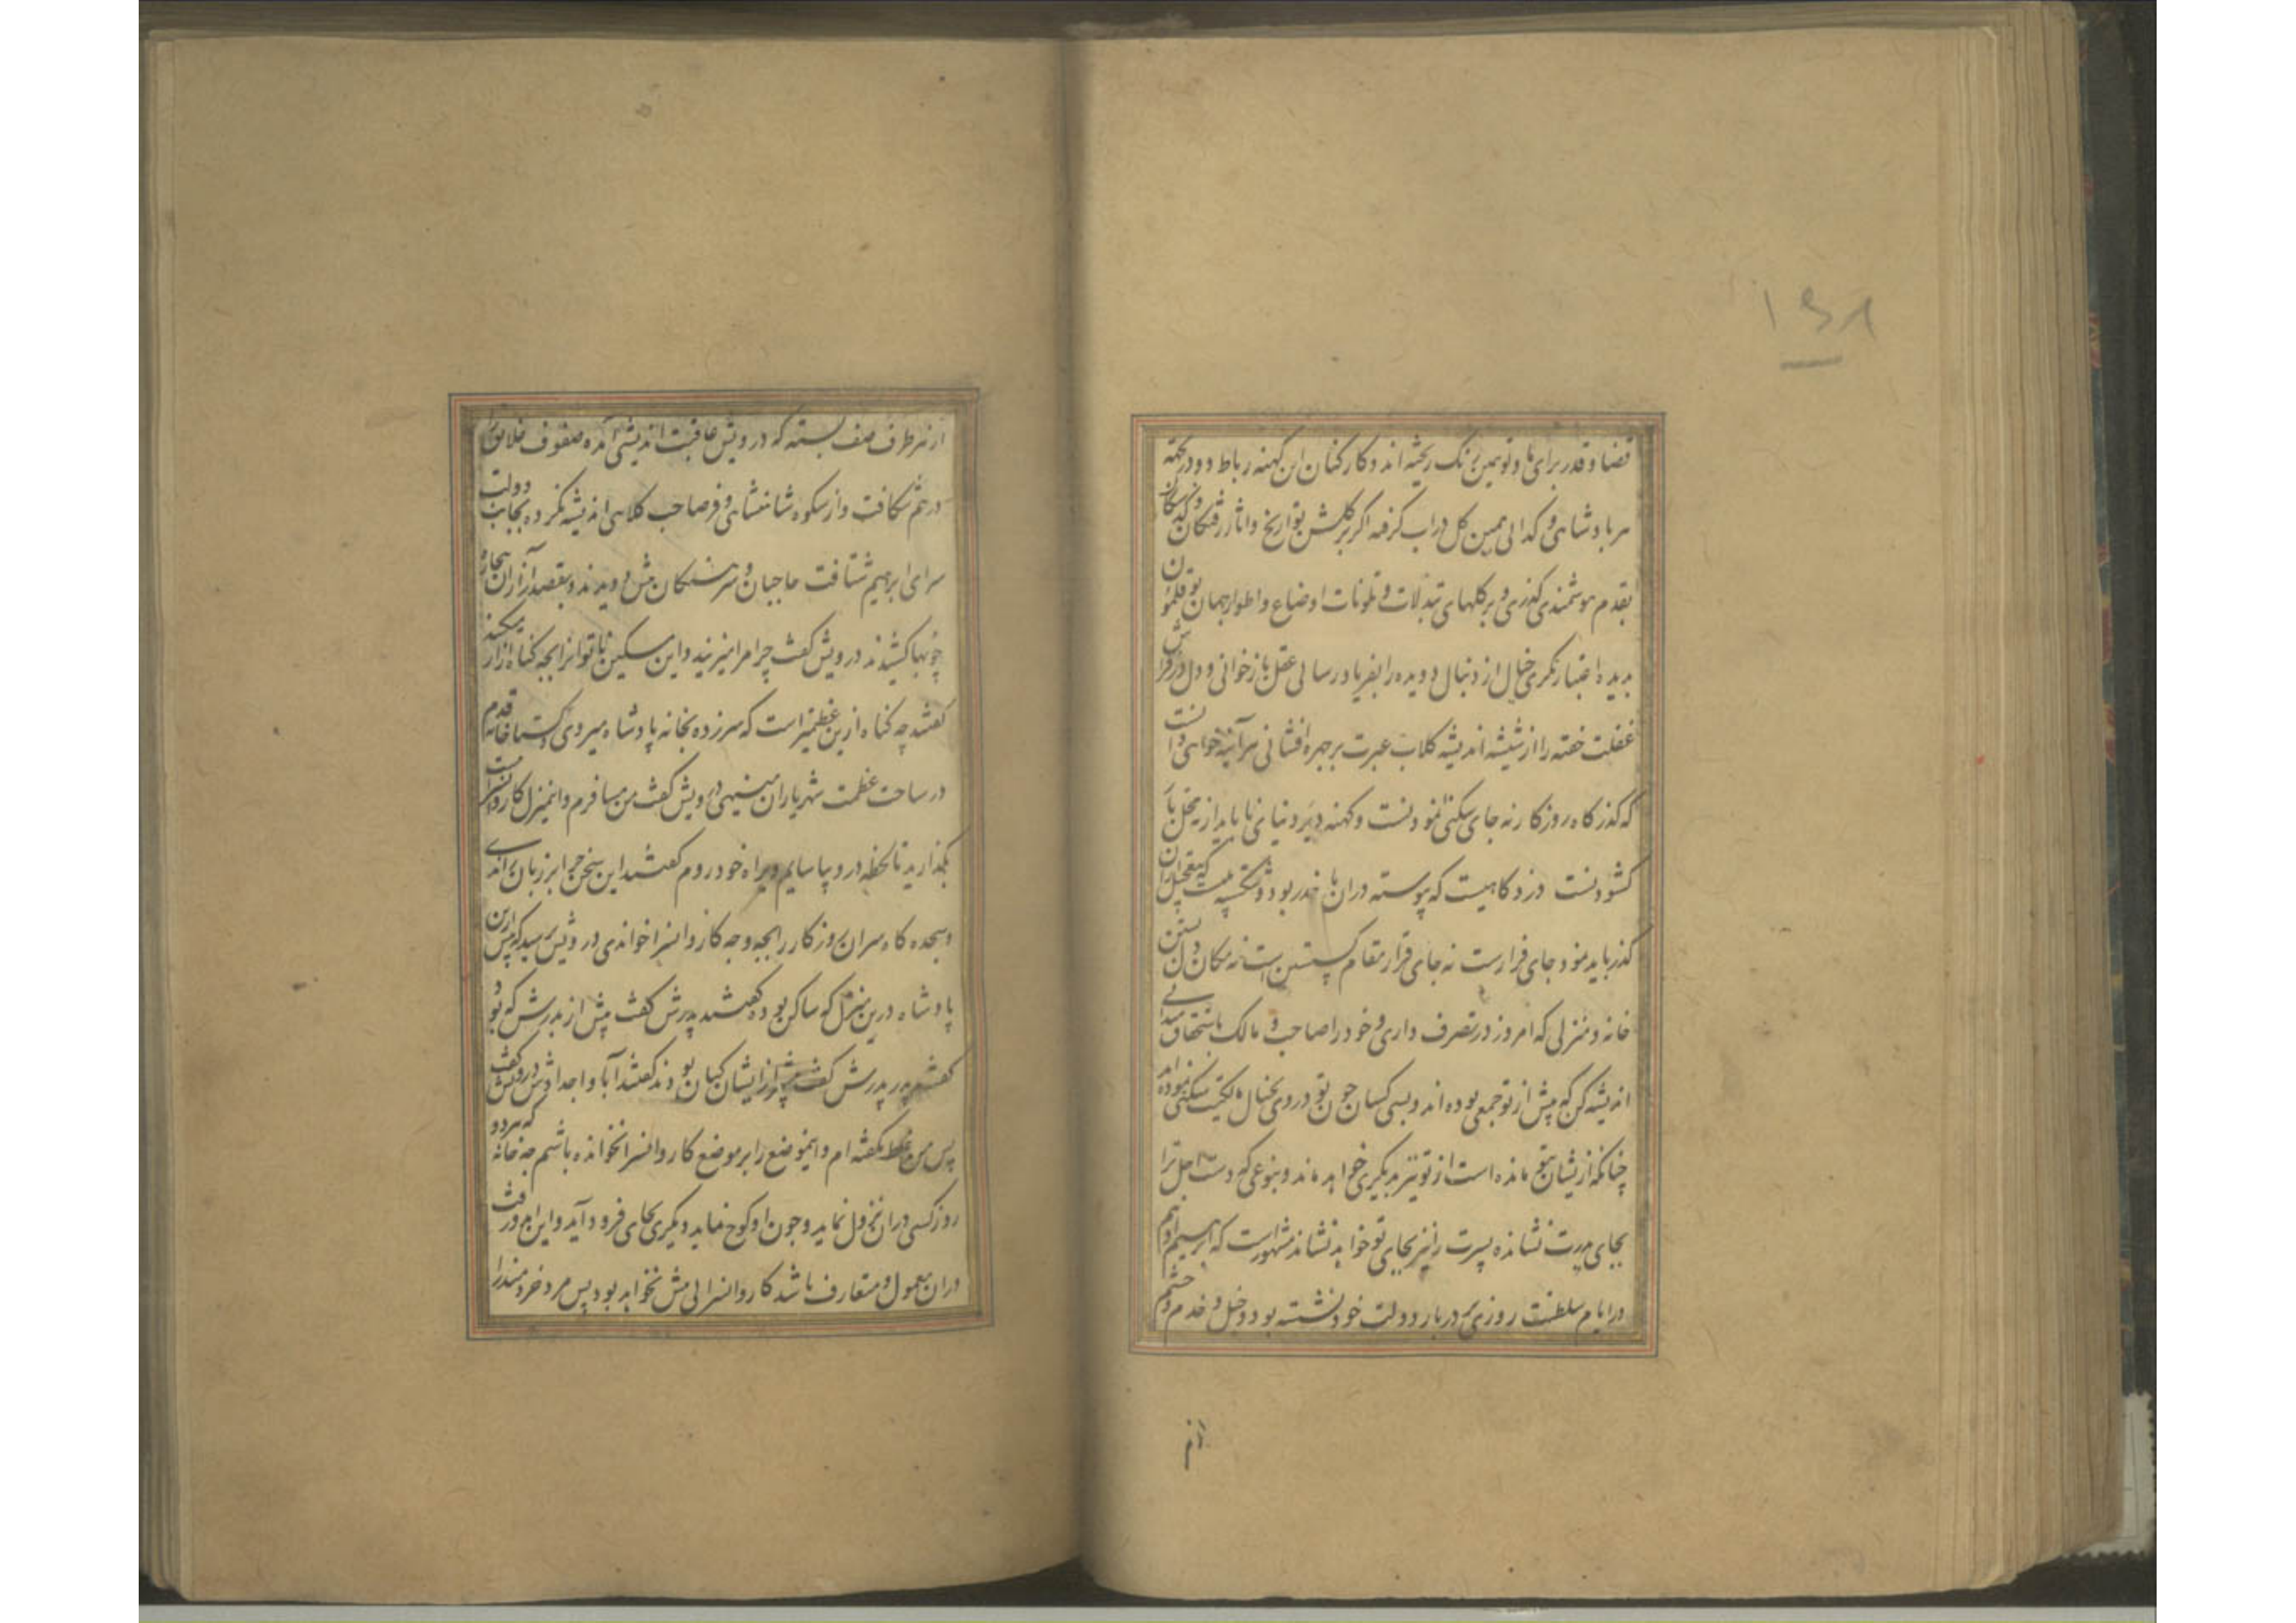 ۱۶۸
قضا و قدر برای ما و تو همین رنک ریخته اند و کارکنان این کهنه رباط دو در تخته
هر پادشاهی و کدایی همین کل در اب کرفته اکر بر کلشن تواریخ و اثار رفتکان که
بقدم هوشمندی کذری و بر کلهای تبدلات و تلونات اوضاع و اطوار جهان بوقلمون
بدیده اعتبار نکری خیال از دنبال دویده را بفریادرسایی عقل باز خوانی و دل در فراش
غفلت خفته را از شیشه اندیشه کلاب عبرت بر چهره افشانی هر آینه خواهی دانست
که کذرکاه روزکار نه جای سکنی نمودنست و کهنه دیر دنیای ناپایدار نه محل بار
کشودنست دزدکاهیست که پیوسته دران با حذر بود و شکسته پلیست که بتعجیل ازان
کذر باید نمود جای فرارست نه جای قرار مقام کسستن است نه مکان دل بستن
خانه و منزلی که امروز در تصرف داری و خود را صاحب و مالک باستحقاق میدانی
اندیشه کن که پیش از تو جمعی بوده اند و بسی کسان چون تو در وی بخیال ملکیت سکنی نموده اند
چنانکه ازیشان بتو مانده است از تو نیز بدیکری خواهد ماند و بنوعی که دست اجل ترا
بجای پدرت نشانده پسرت را نیز بجای تو خواهد نشاند مشهور است که ابرهیم ادهم
در ایام سلطنت روزی بر دربار دولت خود نشسته بود و خیل و خدم و حشم
از هر
از هر طرف صف بسته که درویش عاقبت اندیشی آمده صفوف خلایق را
در هم شکافت و از شکوه شاهنشاهی و فر صاحب کلاهی اندیشه نکرده بجانب دولت
سرای ابرهیم شتافت حاجبان و سرهنکان پیش دویدند و بقصد آزار ان بیچاره
چوبها کشیدند درویش کفت چرا مرا میزنید و این مسکین ناتوانرا بچه کناه ازار میکنید
کفتند چه کناه ازین عظیمتر است که سرزده بخانه پادشاه میروی و کستاخانه قدم
در ساحت عظمت شهریاران مینهی درویش کفت من مسافرم و اینمنزل کاروانسراست
بکذارید تا لحظه درو بیاسایم و براه خود روم کفتند این سخن چرا بر زبان راندی
و سجده کاه سران روزکار را بچه وجه کاروانسرا خواندی درویش پرسید که پیش ازین
پادشاه درین منزل که ساکن بوده کفتند پدرش کفت پیش از پدرش که بود
کفتند پدر پدرش کفت پیش از ایشان کیان بودند کفتند آبا و اجدادش درویش کفت
پس من غلط نکفته ام و اینموضع را بر موضع کاروانسرا نخوانده باشم چه خانه که هر دو
روز کسی دران نزول نماید و چون او کوچ نماید دیکری بجای فرود آید و این امر و رفت
دران معمول و متعارف باشد کاروانسرایی بیش نخواهد بود پس مرد خردمند را